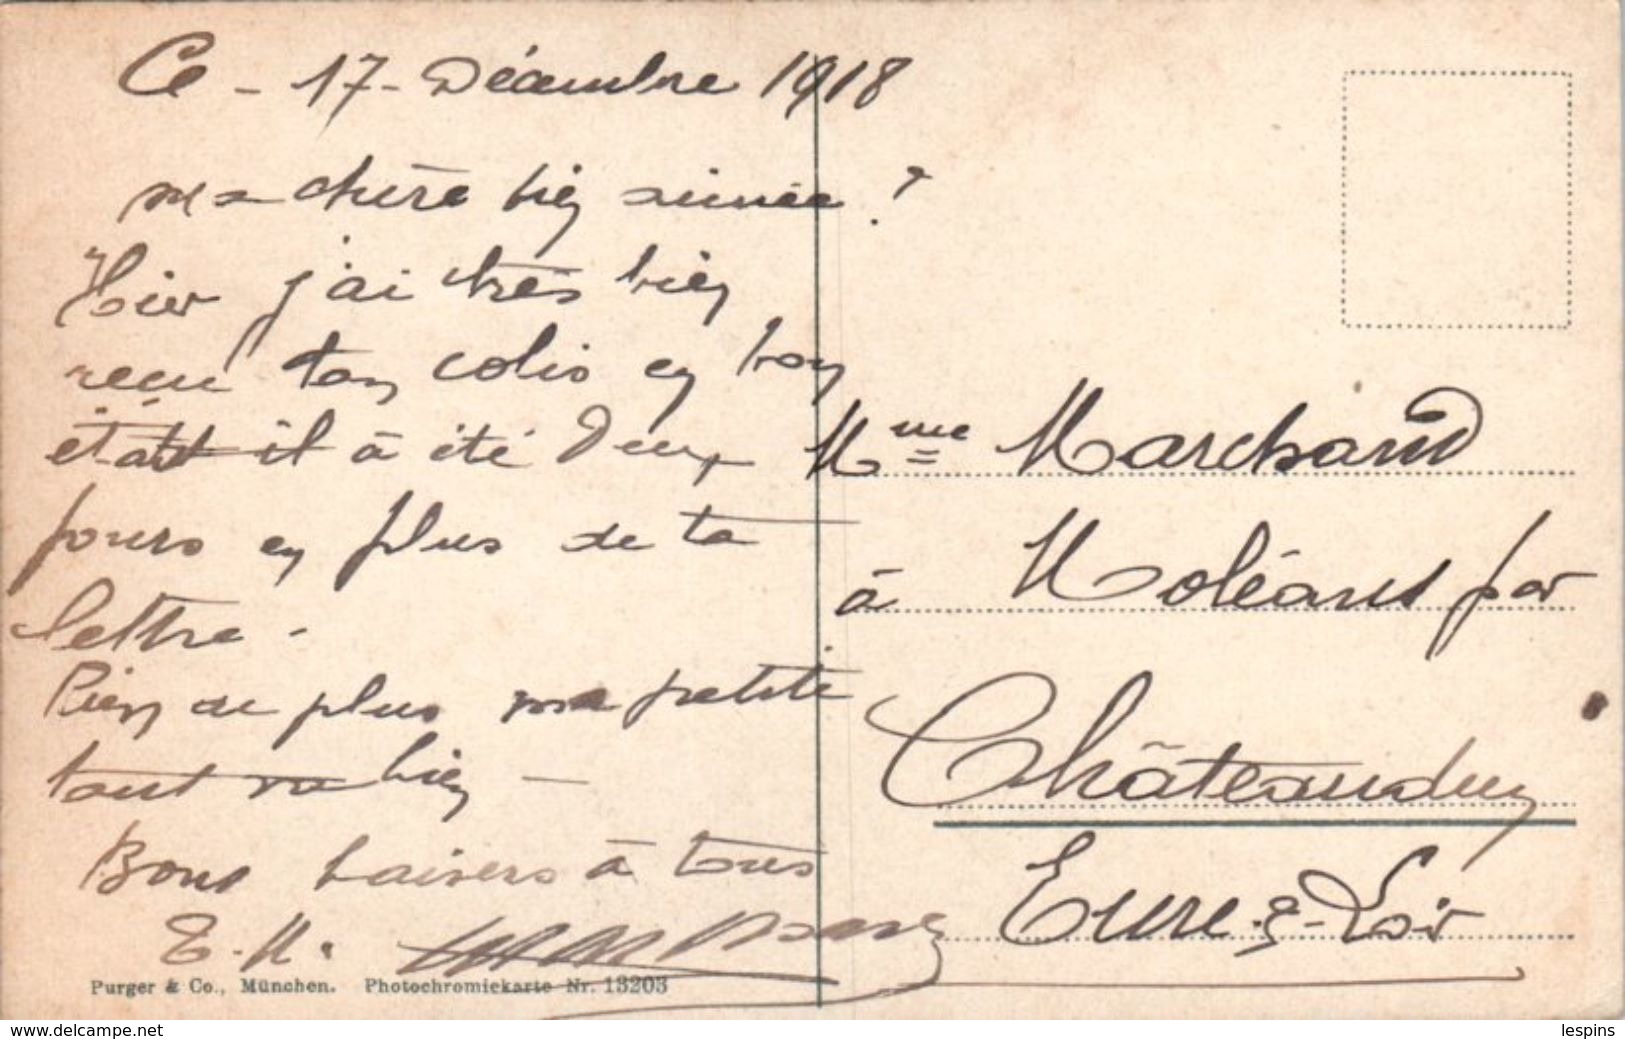 Ce - 17 - Décembre 1918
ma chère bien aimée ?
Hier j'ai très bien
recu ton colis en bon
état il à été Deux
jours en plus de ta
lettre -
Rien de plus ma petite
tout va bien -
Bons baisers à tous
E. M.
Mme Marchand
à Moléans par
Châteaudun
Eure-&-Loir
Purger & Co., München. Photochromiekarte Nr. 13203
www.delcampe.net
lespins